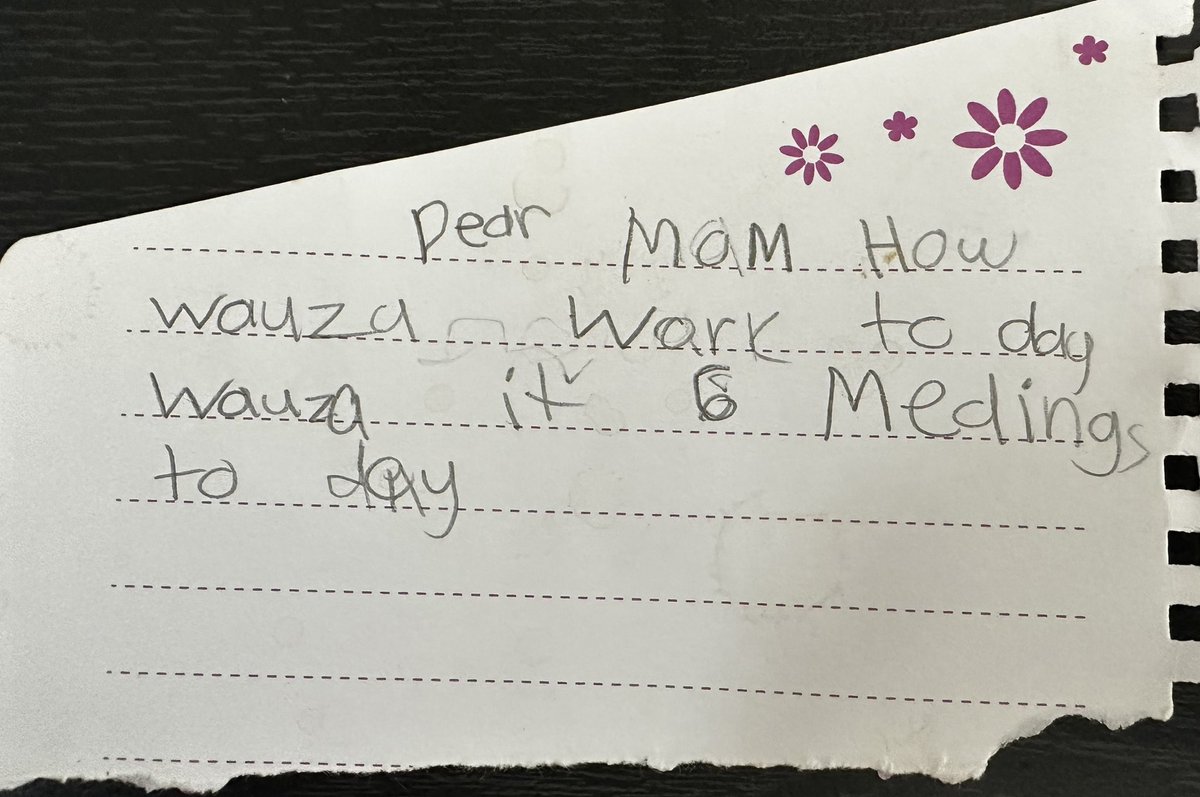 Dear Mom How
wauza Work to day
wauza it 6 Medings
to day